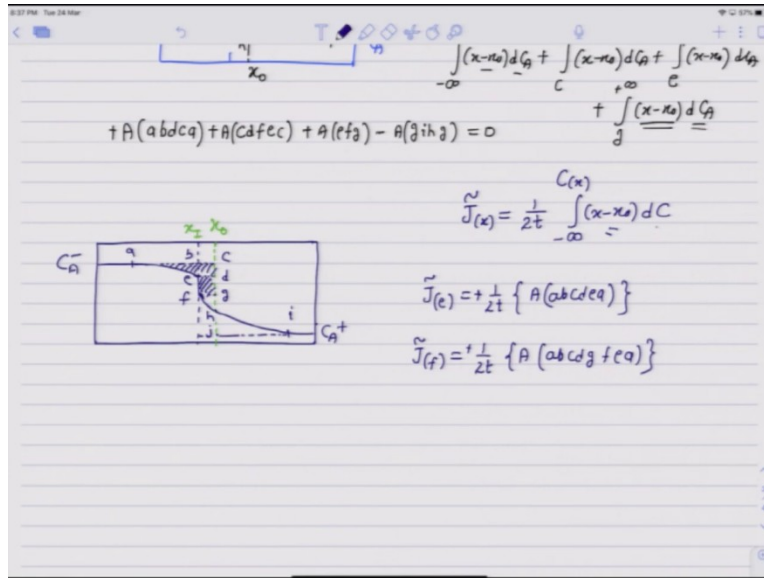 6:37 PM Tue 24 Mar
57%
x₀
∫_{-∞} (x-x₀)dC_A + ∫_C (x-x₀)dC_A + ∫_e (x-x₀) dC_A
+ ∫_g^{+∞} (x-x₀) dC_A
+A(abdca)+A(cdfec) + A(efg) - A(gihg) = 0
J̃(x) = 1/2t ∫_{-∞}^{C(x)} (x-x₀) dC
x_I x₀
C_A⁻ a b c
e d
f g
h i
j C_A⁺
J̃(e) = + 1/2t { A(abcdea)}
J̃(f) = + 1/2t {A (abcdgfea)}